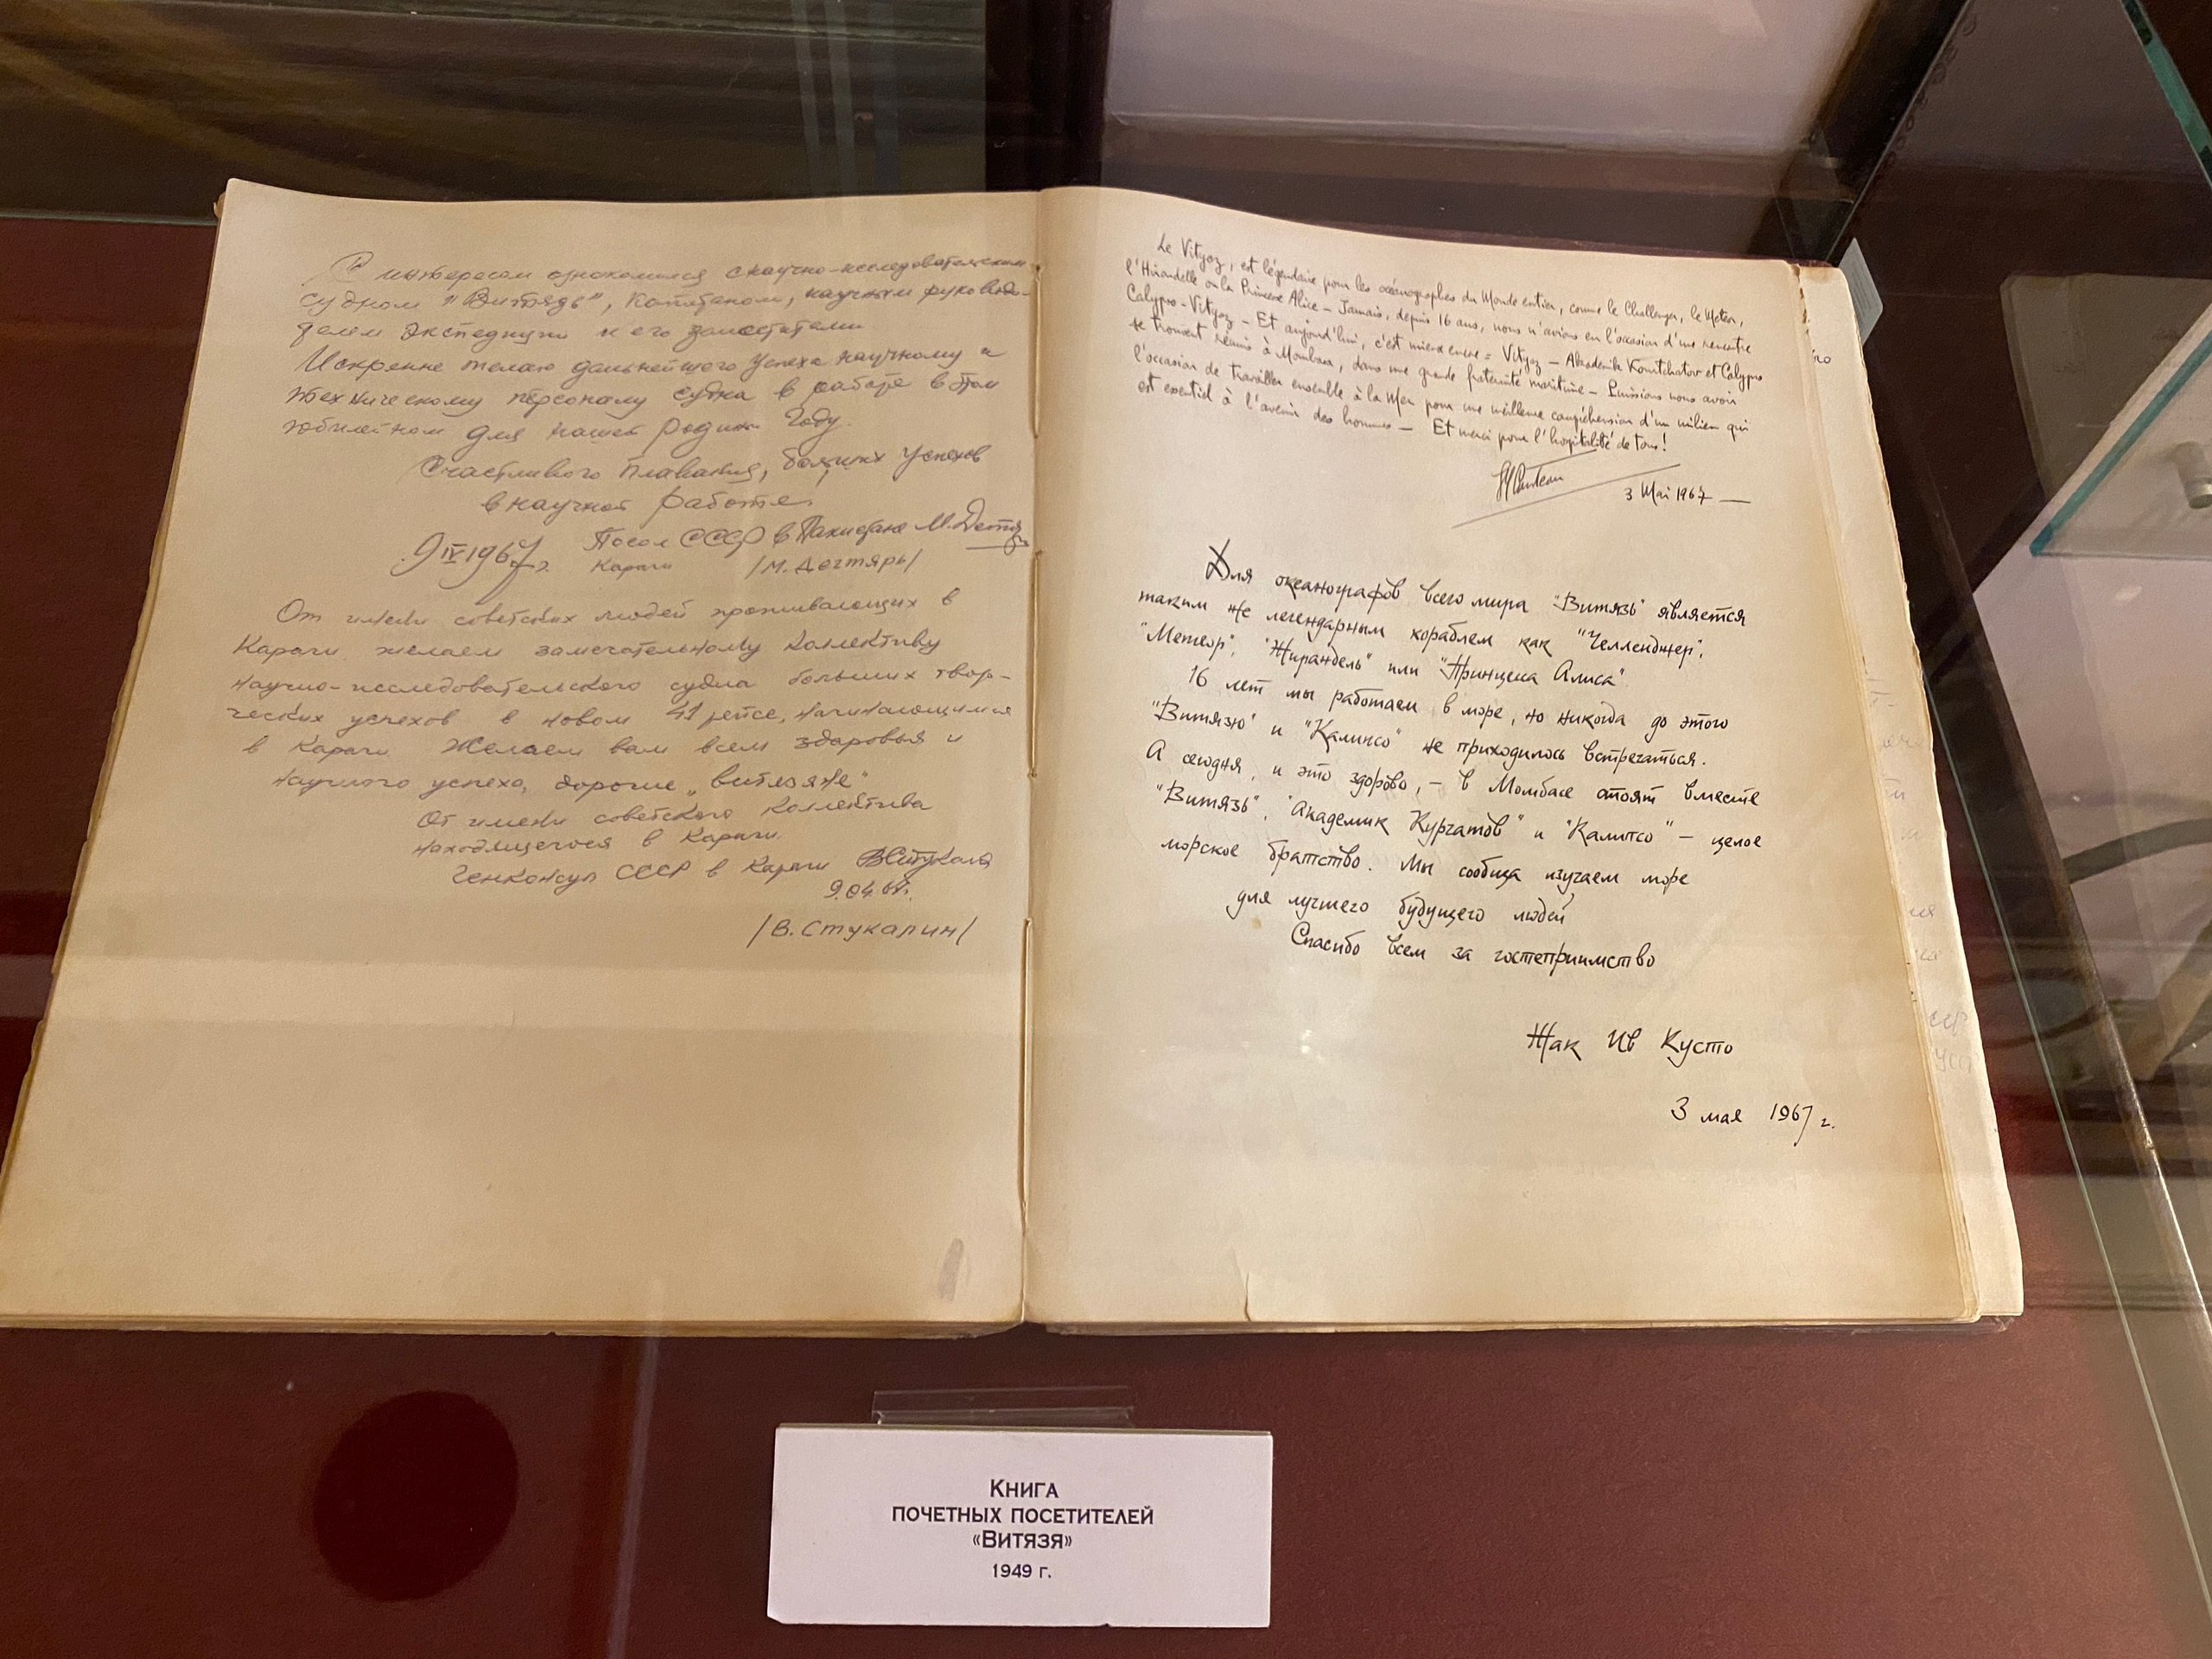 С интересом ознакомился с научно-исследовательским
судном "Витязь", капитаном, научным руководи-
телем экспедиции и его заместителями
Искренне желаю дальнейшего успеха научному и
техническому персоналу судна в работе в этом
юбилейном для нашей родины году.
Счастливого плавания, больших успехов
в научной работе.
Посол СССР в Пакистане М. Дегтярь
9 IV 1967 г. Карачи /М. Дегтярь/
От имени советских людей проживающих в
Карачи желаем замечательному коллективу
научно-исследовательского судна больших твор-
ческих успехов в новом 41 рейсе, начинающимся
в Карачи. Желаем вам всем здоровья и
научного успеха, дорогие „витязяне"
От имени советского коллектива
находящегося в Карачи.
Генконсул СССР в Карачи ВСтукалин
9.04.67г.
/В. Стукалин/
Le Vityaz, est légendaire pour les océanographes du Monde entier, comme le Challenger, le Meteor,
l'Hirondelle ou la Princesse Alice - Jamais, depuis 16 ans, nous n'avions eu l'occasion d'une rencontre
Calypso-Vityaz - Et aujourd'hui, c'est mieux encore = Vityaz - Akademik Kourtchatov et Calypso
se trouvent réunis à Mombasa, dans une grande fraternité maritime - Puissions nous avoir
l'occasion de travailler ensemble à la Mer pour une meilleure compréhension d'un milieu qui
est essentiel à l'avenir des hommes - Et merci pour l'hospitalité de tous!
JYCousteau
3 Mai 1967 —
Для океанографов всего мира "Витязь" является
таким же легендарным кораблем как "Челленджер",
"Метеор", "Жирандель" или "Принцесса Алиса".
16 лет мы работаем в море, но никогда до этого
"Витязю" и "Калипсо" не приходилось встречаться.
А сегодня, и это здорово, - в Момбасе стоят вместе
"Витязь", "Академик Курчатов" и "Калипсо" - целое
морское братство. Мы сообща изучаем море
для лучшего будущего людей
Спасибо всем за гостеприимство
Жак Ив Кусто
3 мая 1967 г.
Книга
почетных посетителей
«Витязя»
1949 г.